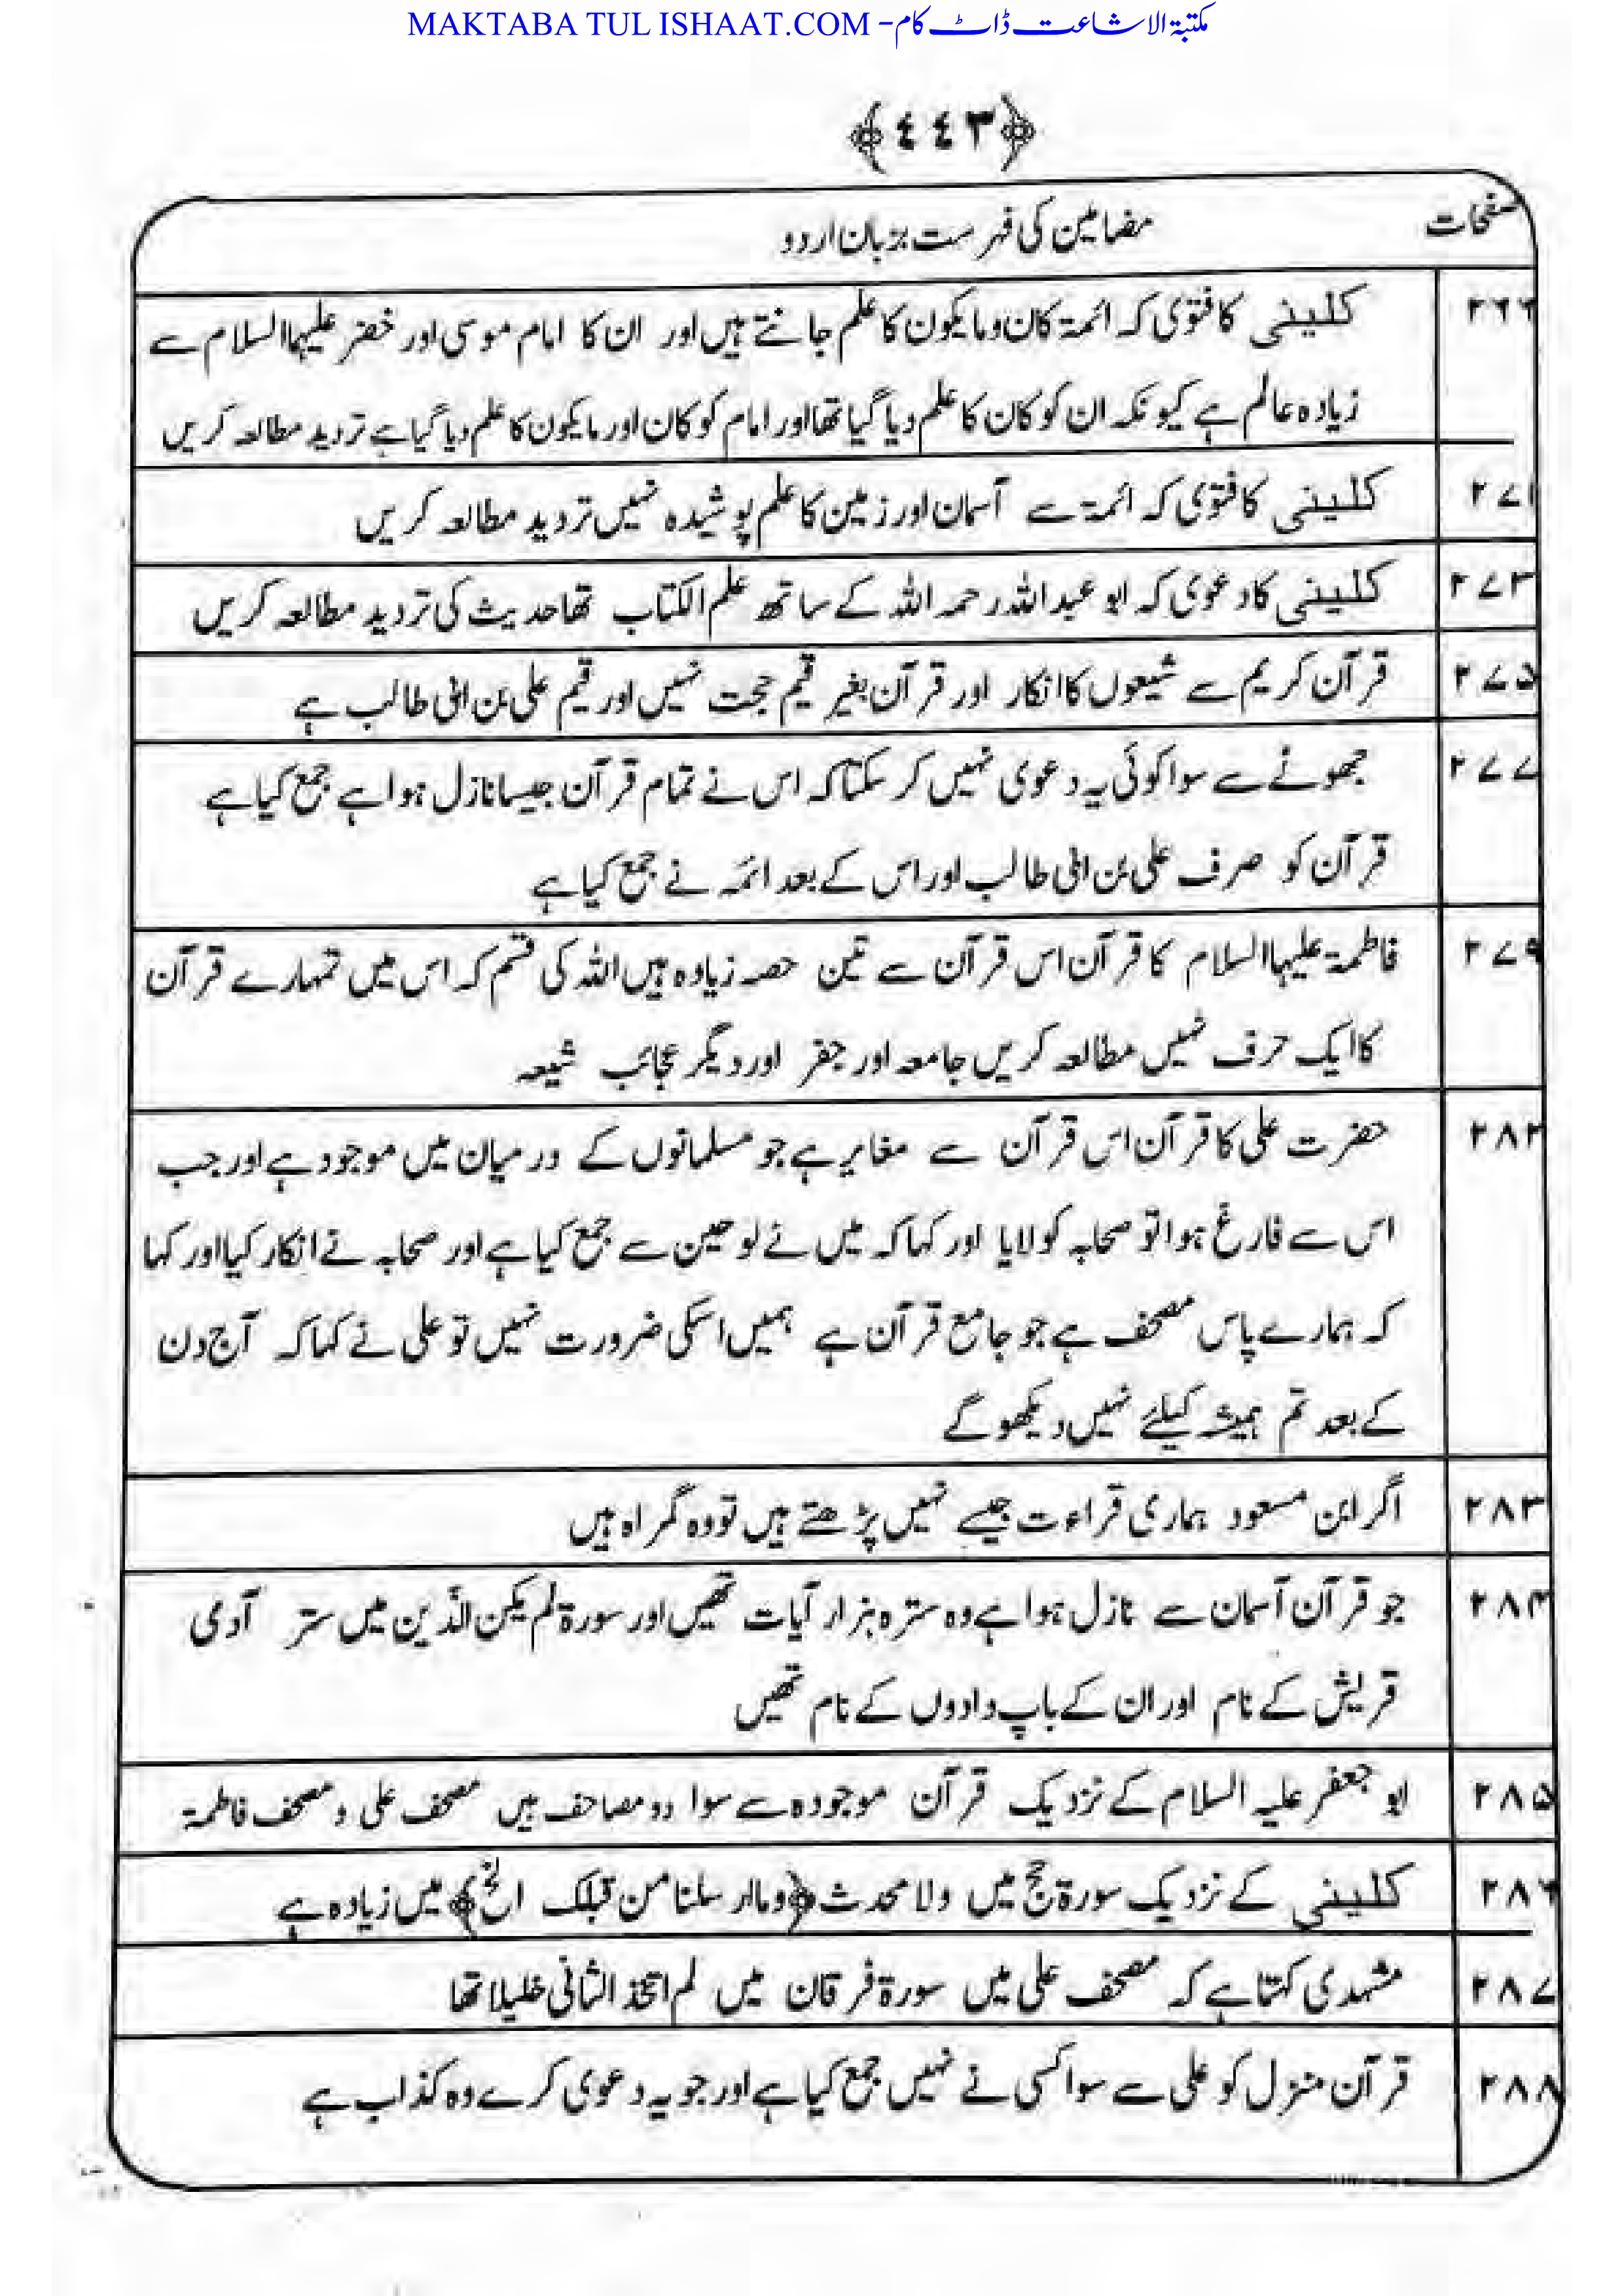 MAKTABA TUL ISHAAT.COM - مکتبۃ الاشاعت ڈاٹ کام
﴿٤٤٣﴾
صفحات مضامین کی فہرست بزبان اردو
٢٦٦ کلینی کا فتوی کہ ائمۃ کان وما یکون کا علم جانتے ہیں اور ان کا امام موسی اور خضر علیہما السلام سے
زیادہ عالم ہے کیونکہ ان کو کان کا علم دیا گیا تھا اور امام کو کان اور ما یکون کا علم دیا گیا ہے تردید مطالعہ کریں
٢٧١ کلینی کا فتوی کہ ائمۃ سے آسمان اور زمین کا علم پوشیدہ نہیں تردید مطالعہ کریں
٢٧٣ کلینی کا دعوی کہ ابو عبد اللہ رحمہ اللہ کے ساتھ علم الکتاب تھا حدیث کی تردید مطالعہ کریں
٢٧٥ قرآن کریم سے شیعوں کا انکار اور قرآن بغیر قیم حجت نہیں اور قیم علی بن ابی طالب ہے
٢٧٧ جھونے سے سوا کوئی یہ دعوی نہیں کر سکتا کہ اس نے تمام قرآن جیسا نازل ہوا ہے جمع کیا ہے
قرآن کو صرف علی بن ابی طالب اور اس کے بعد ائمہ نے جمع کیا ہے
٢٧٩ فاطمۃ علیہا السلام کا قرآن اس قرآن سے تین حصہ زیادہ ہیں اللہ کی قسم کہ اس میں تمہارے قرآن
کا ایک حرف نہیں مطالعہ کریں جامعہ اور جفر اور دیگر عجائب شیعہ
٢٨٢ حضرت علی کا قرآن اس قرآن سے مغایر ہے جو مسلمانوں کے درمیان میں موجود ہے اور جب
اس سے فارغ ہوا تو صحابہ کو لایا اور کہا کہ میں نے لوحین سے جمع کیا ہے اور صحابہ نے انکار کیا اور کہا
کہ ہمارے پاس مصحف ہے جو جامع قرآن ہے ہمیں اسکی ضرورت نہیں تو علی نے کہا کہ آج دن
کے بعد تم ہمیشہ کیلئے نہیں دیکھو گے
٢٨٣ اگر ابن مسعود ہماری قراءت جیسے نہیں پڑھتے ہیں تو وہ گمراہ ہیں
٢٨٤ جو قرآن آسمان سے نازل ہوا ہے وہ سترہ ہزار آیات تھیں اور سورۃ لم یکن الذین میں ستر آدمی
قریش کے نام اور ان کے باپ دادوں کے نام تھیں
٢٨٥ ابو جعفر علیہ السلام کے نزدیک قرآن موجودہ سے سوا دو مصاحف ہیں مصحف علی و مصحف فاطمۃ
٢٨٦ کلینی کے نزدیک سورۃ حج میں ولا محدث ﴿وما ارسلنا من قبلک الخ﴾ میں زیادہ ہے
٢٨٧ مشہدی کہتا ہے کہ مصحف علی میں سورۃ فرقان میں لم اتخذ الثانی خلیلا تھا
٢٨٨ قرآن منزل کو علی سے سوا کسی نے نہیں جمع کیا ہے اور جو یہ دعوی کرے وہ کذاب ہے